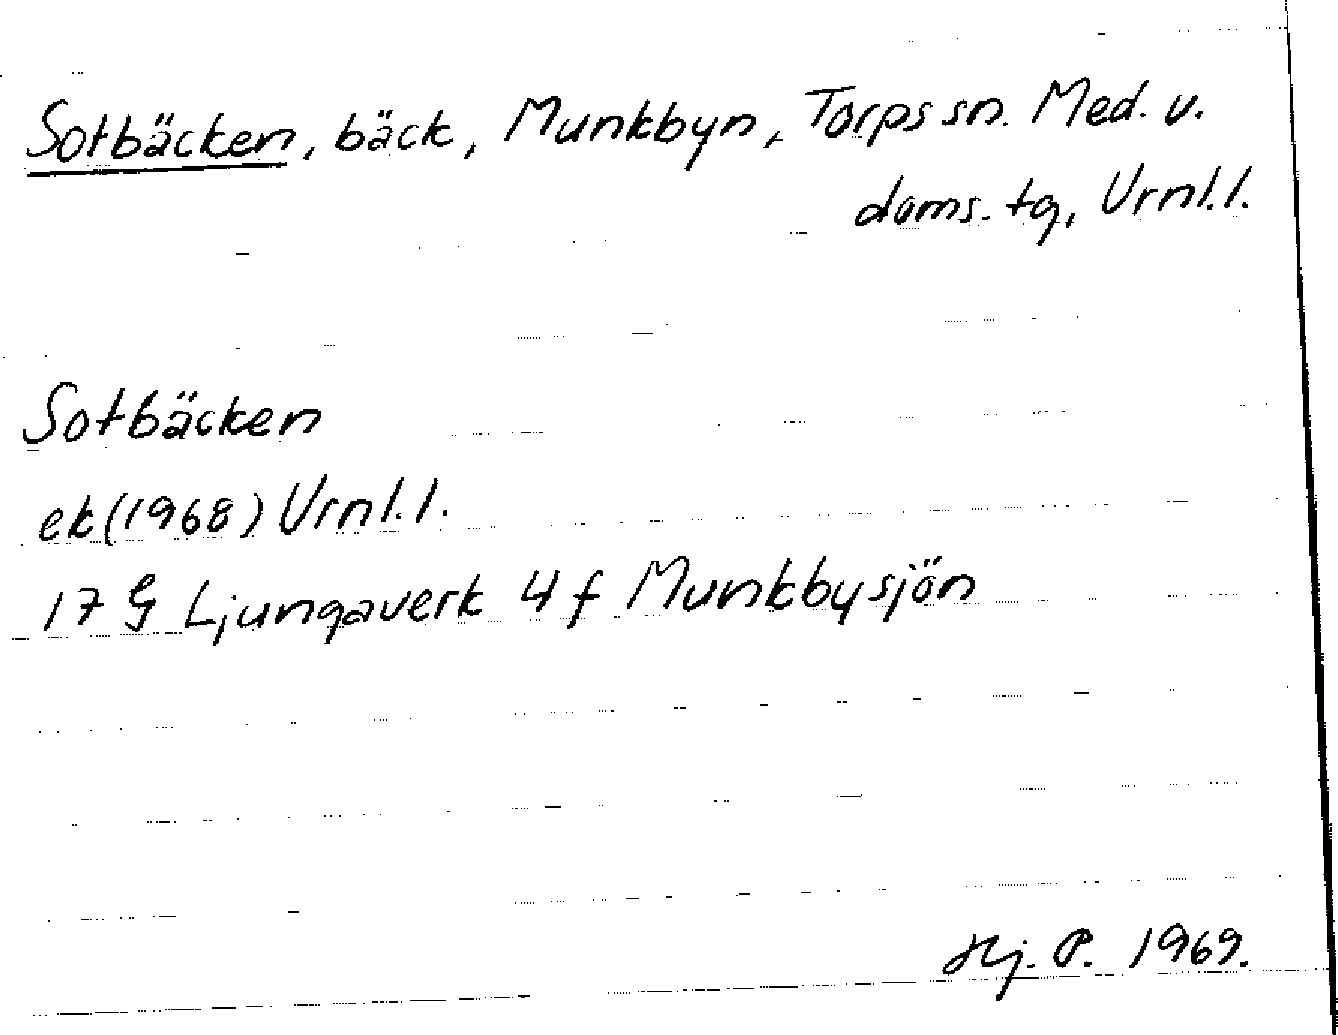 Sotbäcken, bäck, Munkbyn, Torps sn. Med. v.
doms. tg, Vrnl.l.
Sotbäcken
ek (1968) Vrnl.l.
17 G Ljungaverk 4 f Munkbysjön
Hj. P. 1969.